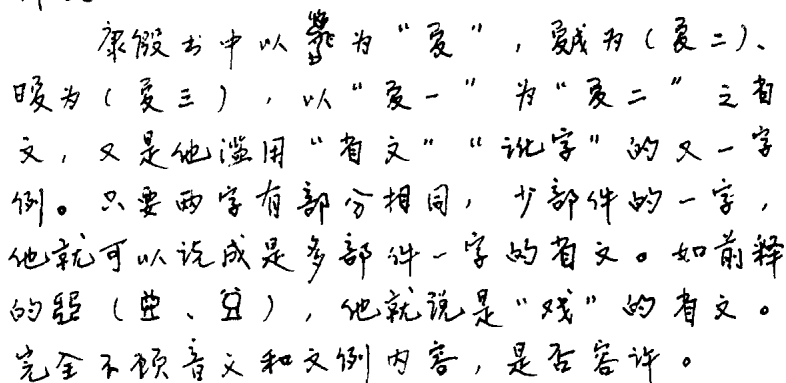 康殷书中以为“爰”，爱为（爰二）、
暖为（爰三），以“爰一”为“爰二”之省
文，又是他滥用“省文”“讹字”的又一字
例。只要两字有部分相同，少部件的一字，
他就可以说成是多部件一字的省文。如前释
的（、），他就说是“戏”的省文。
完全不顾音义和文例内容，是否容许。